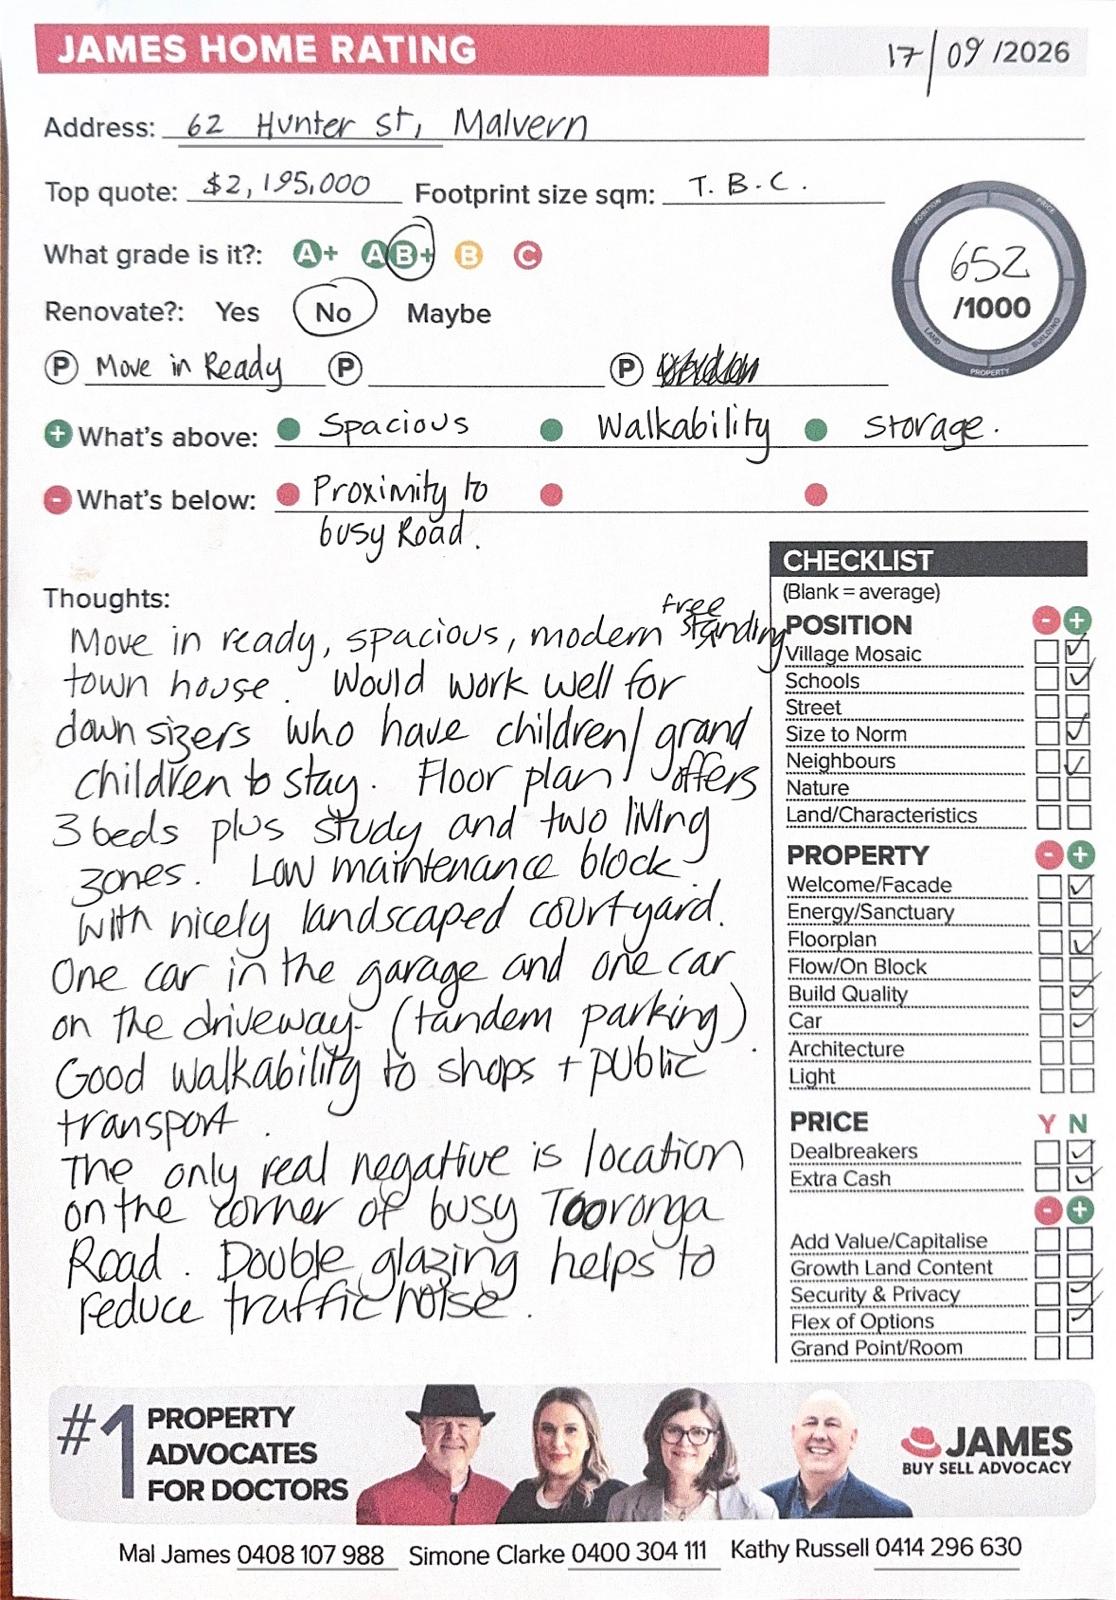 JAMES HOME RATING
17/09/2026
Address: 62 Hunter st, Malvern
Top quote: $2,195,000 Footprint size sqm: T.B.C.
What grade is it?: A+ A B+ B C
POSITION PRICE BUILDING PROPERTY LAND
652
/1000
Renovate?: Yes No Maybe
P Move in Ready P P
+ What's above: Spacious Walkability Storage.
- What's below: Proximity to
busy Road.
Thoughts:
Move in ready, spacious, modern free standing
town house. Would work well for
downsizers who have children/grand
children to stay. Floor plan offers
3 beds plus study and two living
zones. Low maintenance block
with nicely landscaped courtyard.
One car in the garage and one car
on the driveway (tandem parking).
Good walkability to shops + public
transport.
The only real negative is location
on the corner of busy Tooronga
Road. Double glazing helps to
reduce traffic noise.
CHECKLIST
(Blank = average)
POSITION - +
Village Mosaic
Schools
Street
Size to Norm
Neighbours
Nature
Land/Characteristics
PROPERTY - +
Welcome/Facade
Energy/Sanctuary
Floorplan
Flow/On Block
Build Quality
Car
Architecture
Light
PRICE Y N
Dealbreakers
Extra Cash
- +
Add Value/Capitalise
Growth Land Content
Security & Privacy
Flex of Options
Grand Point/Room
#1 PROPERTY
ADVOCATES
FOR DOCTORS
JAMES
BUY SELL ADVOCACY
Mal James 0408 107 988 Simone Clarke 0400 304 111 Kathy Russell 0414 296 630